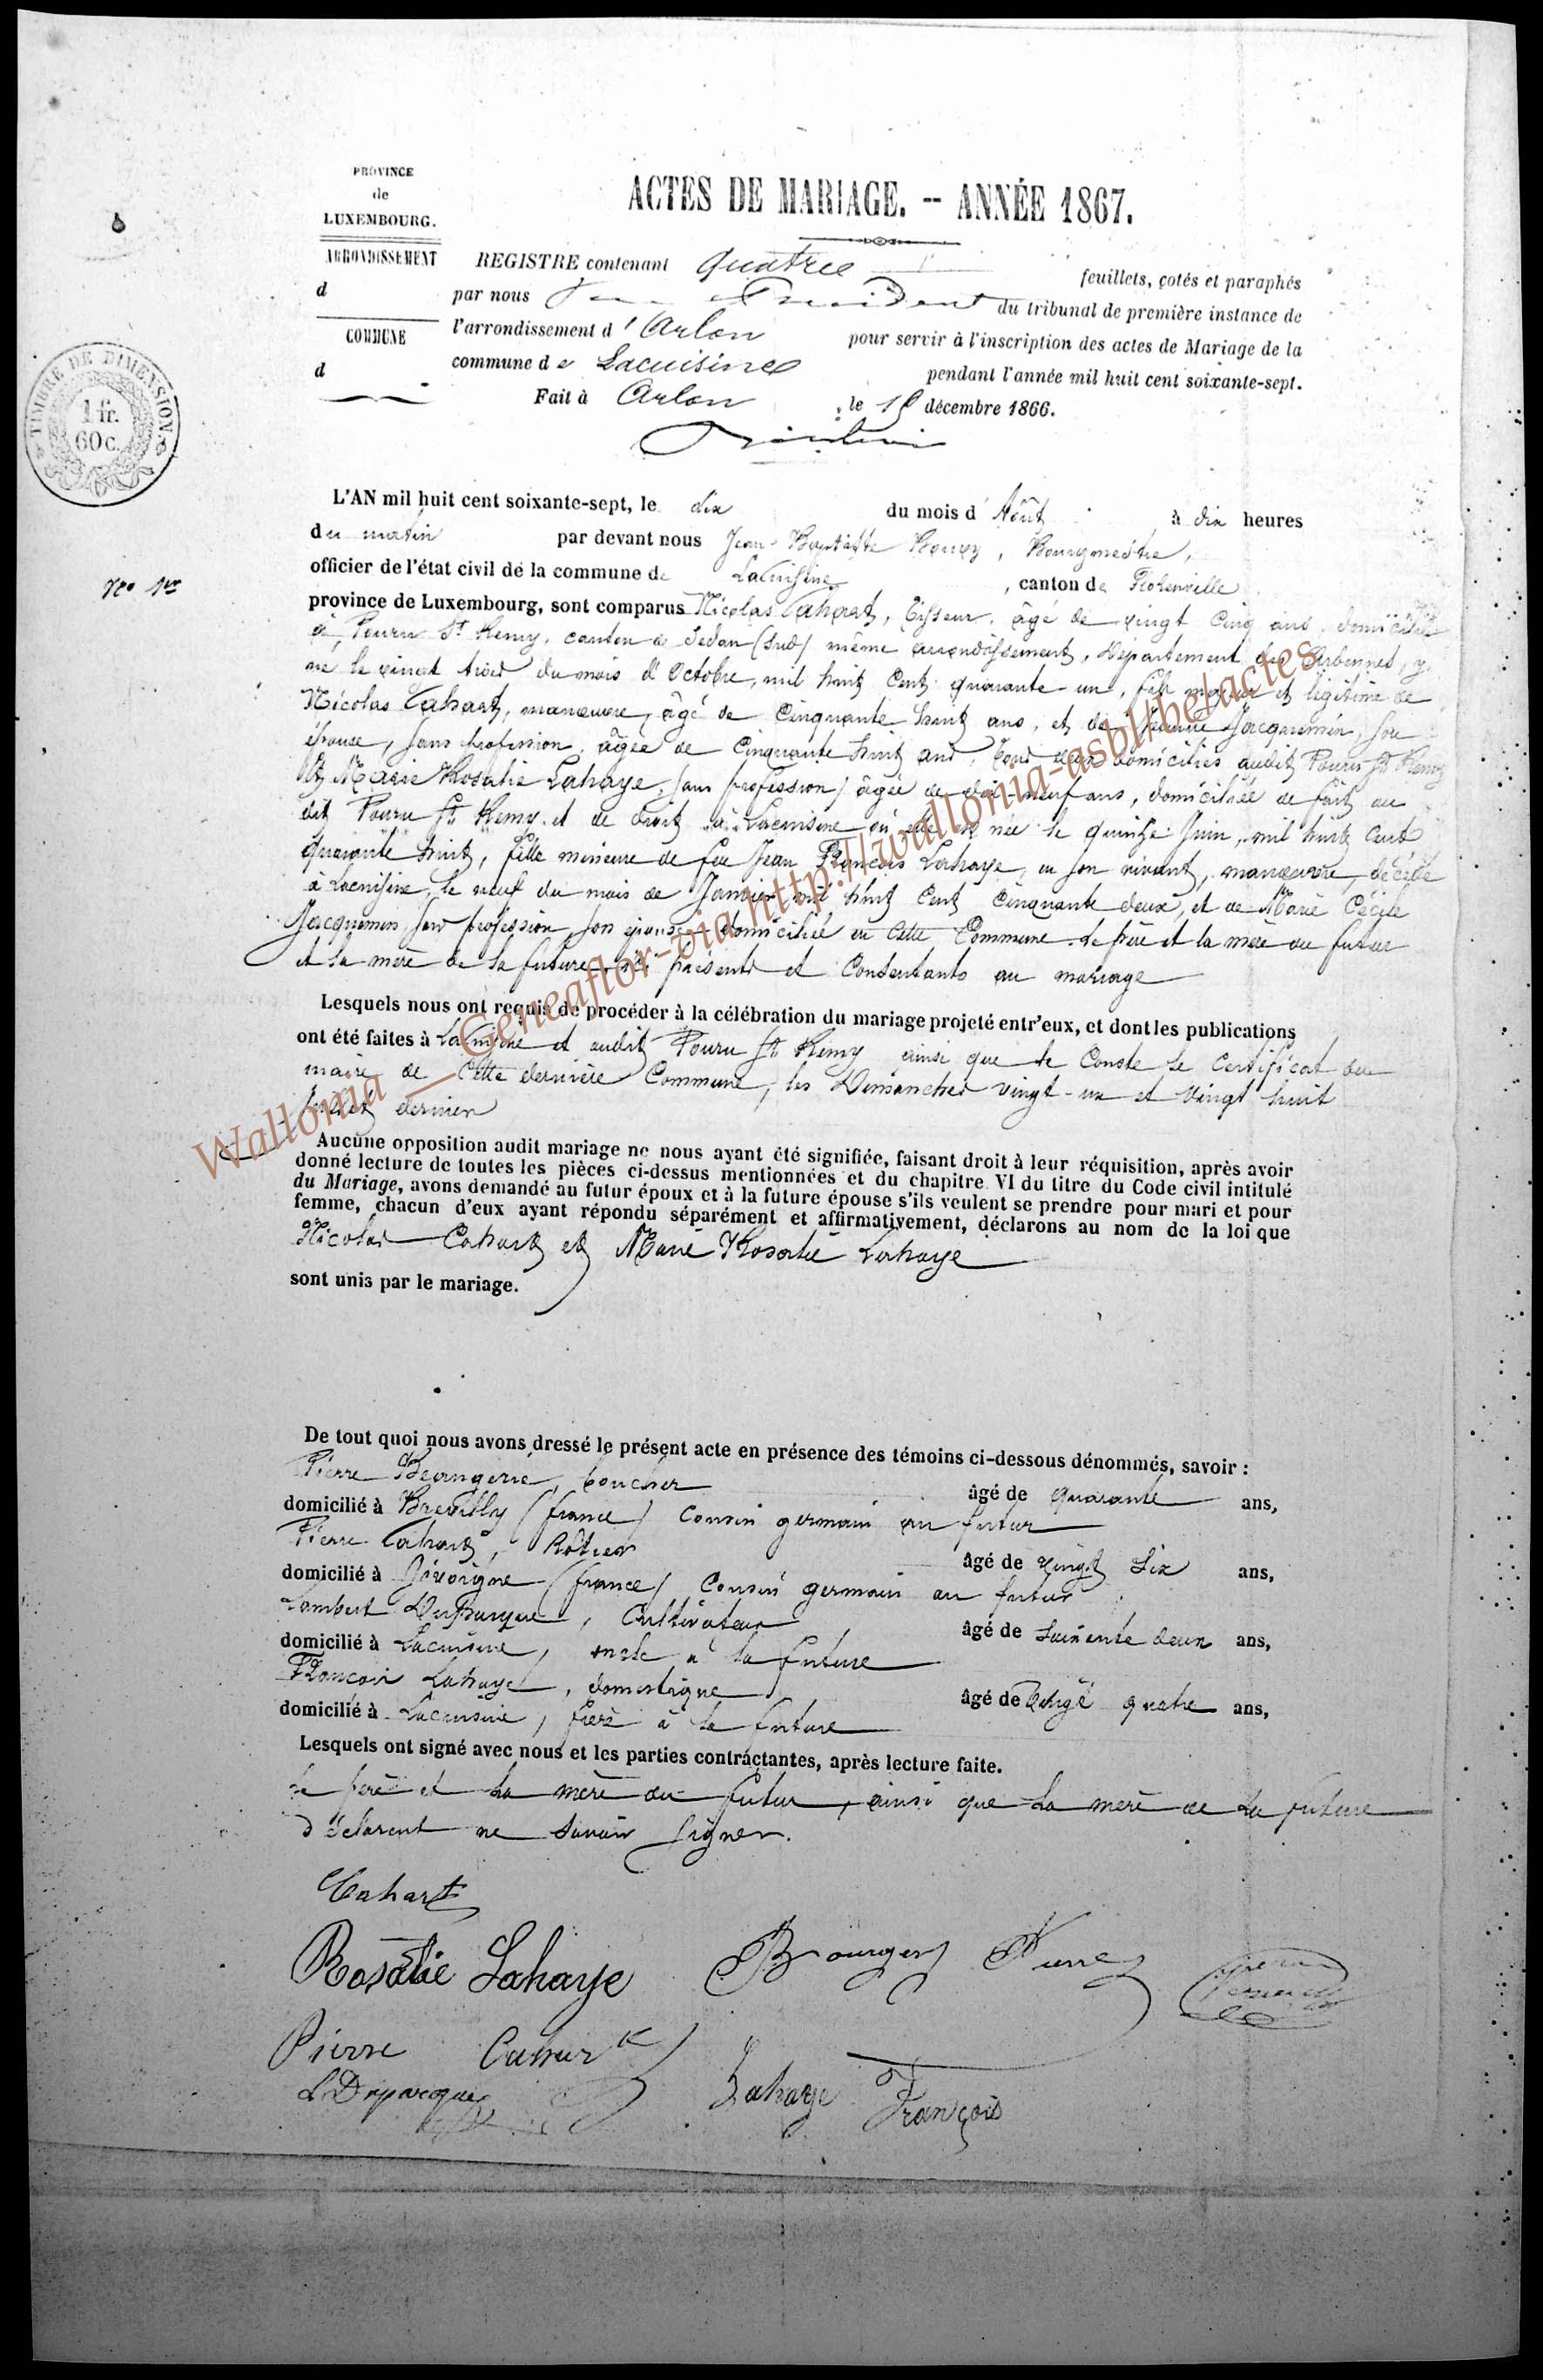 PROVINCE
de
LUXEMBOURG.
ARRONDISSEMENT
d
COMMUNE
d
TIMBRE DE DIMENSION
1 fr.
60 c.
ACTES DE MARIAGE. -- ANNÉE 1867.
REGISTRE contenant quatre feuillets, cotés et paraphés
par nous Président du tribunal de première instance de
l'arrondissement d'Arlon pour servir à l'inscription des actes de Mariage de la
commune de Lacuisine pendant l'année mil huit cent soixante-sept.
Fait à Arlon, le 15 décembre 1866.
No 1er
L'AN mil huit cent soixante-sept, le dix du mois d'Août à dix heures
du matin par devant nous Jean-Baptiste Bourgmestre,
officier de l'état civil de la commune de Lacuisine, canton de Florenville
province de Luxembourg, sont comparus Nicolas Cahart, tisseur, âgé de vingt cinq ans, domicilié
à Pouru St Remy, canton de Sedan (Sud) même arrondissement, Département des Ardennes, y
né le vingt trois du mois d'Octobre, mil huit cent quarante un, fils majeur et légitime de
Nicolas Cahart, manœuvre, âgé de cinquante huit ans, et de Jacquemin, son
épouse, sans profession, âgée de cinquante huit ans, tous deux domiciliés audit Pouru St Remy
Et Marie Rosalie Lahaye, (sans profession) âgée de dix-neuf ans, domiciliée de fait au
dit Pouru St Remy et de droit à Lacuisine où elle est née le quinze Juin, mil huit cent
quarante huit, fille mineure de feu Jean François Lahaye, en son vivant, manœuvre, décédé
à Lacuisine, le neuf du mois de Janvier mil huit cent cinquante deux, et de Marie Cécile
Jacquemin, sans profession, son épouse domiciliée en cette Commune. Le père et la mère du futur
et la mère de la future, ici présents et consentants au mariage
Lesquels nous ont requis de procéder à la célébration du mariage projeté entr'eux, et dont les publications
ont été faites à Lacuisine et audit Pouru St Remy ainsi que le Conste le Certificat du
maire de cette dernière Commune, les Dimanches vingt-un et vingt huit
juillet dernier
Aucune opposition audit mariage ne nous ayant été signifiée, faisant droit à leur réquisition, après avoir
donné lecture de toutes les pièces ci-dessus mentionnées et du chapitre VI du titre du Code civil intitulé
du Mariage, avons demandé au futur époux et à la future épouse s'ils veulent se prendre pour mari et pour
femme, chacun d'eux ayant répondu séparément et affirmativement, déclarons au nom de la loi que
Nicolas Cahart et Marie Rosalie Lahaye
sont unis par le mariage.
De tout quoi nous avons dressé le présent acte en présence des témoins ci-dessous dénommés, savoir :
Pierre boucher âgé de quarante ans,
domicilié à Brevilly (france) Cousin germain au futur
Pierre Cahart, âgé de vingt six ans,
domicilié à (france) Cousin germain au futur
Lambert Duparque, Cultivateur âgé de Soixante deux ans,
domicilié à Lacuisine, oncle à la future
François Lahaye, domestique âgé de Vingt quatre ans,
domicilié à Lacuisine, frère à la future
Lesquels ont signé avec nous et les parties contractantes, après lecture faite.
Le père et la mère du futur, ainsi que la mère de la future
Déclarent ne Savoir Signer.
Cahart
Rosalie Lahaye
Pierre
Pierre Cahart
LDuparque
Lahaye François
Wallonia __ Geneaflor-via http://wallonia-asbl/be/actes